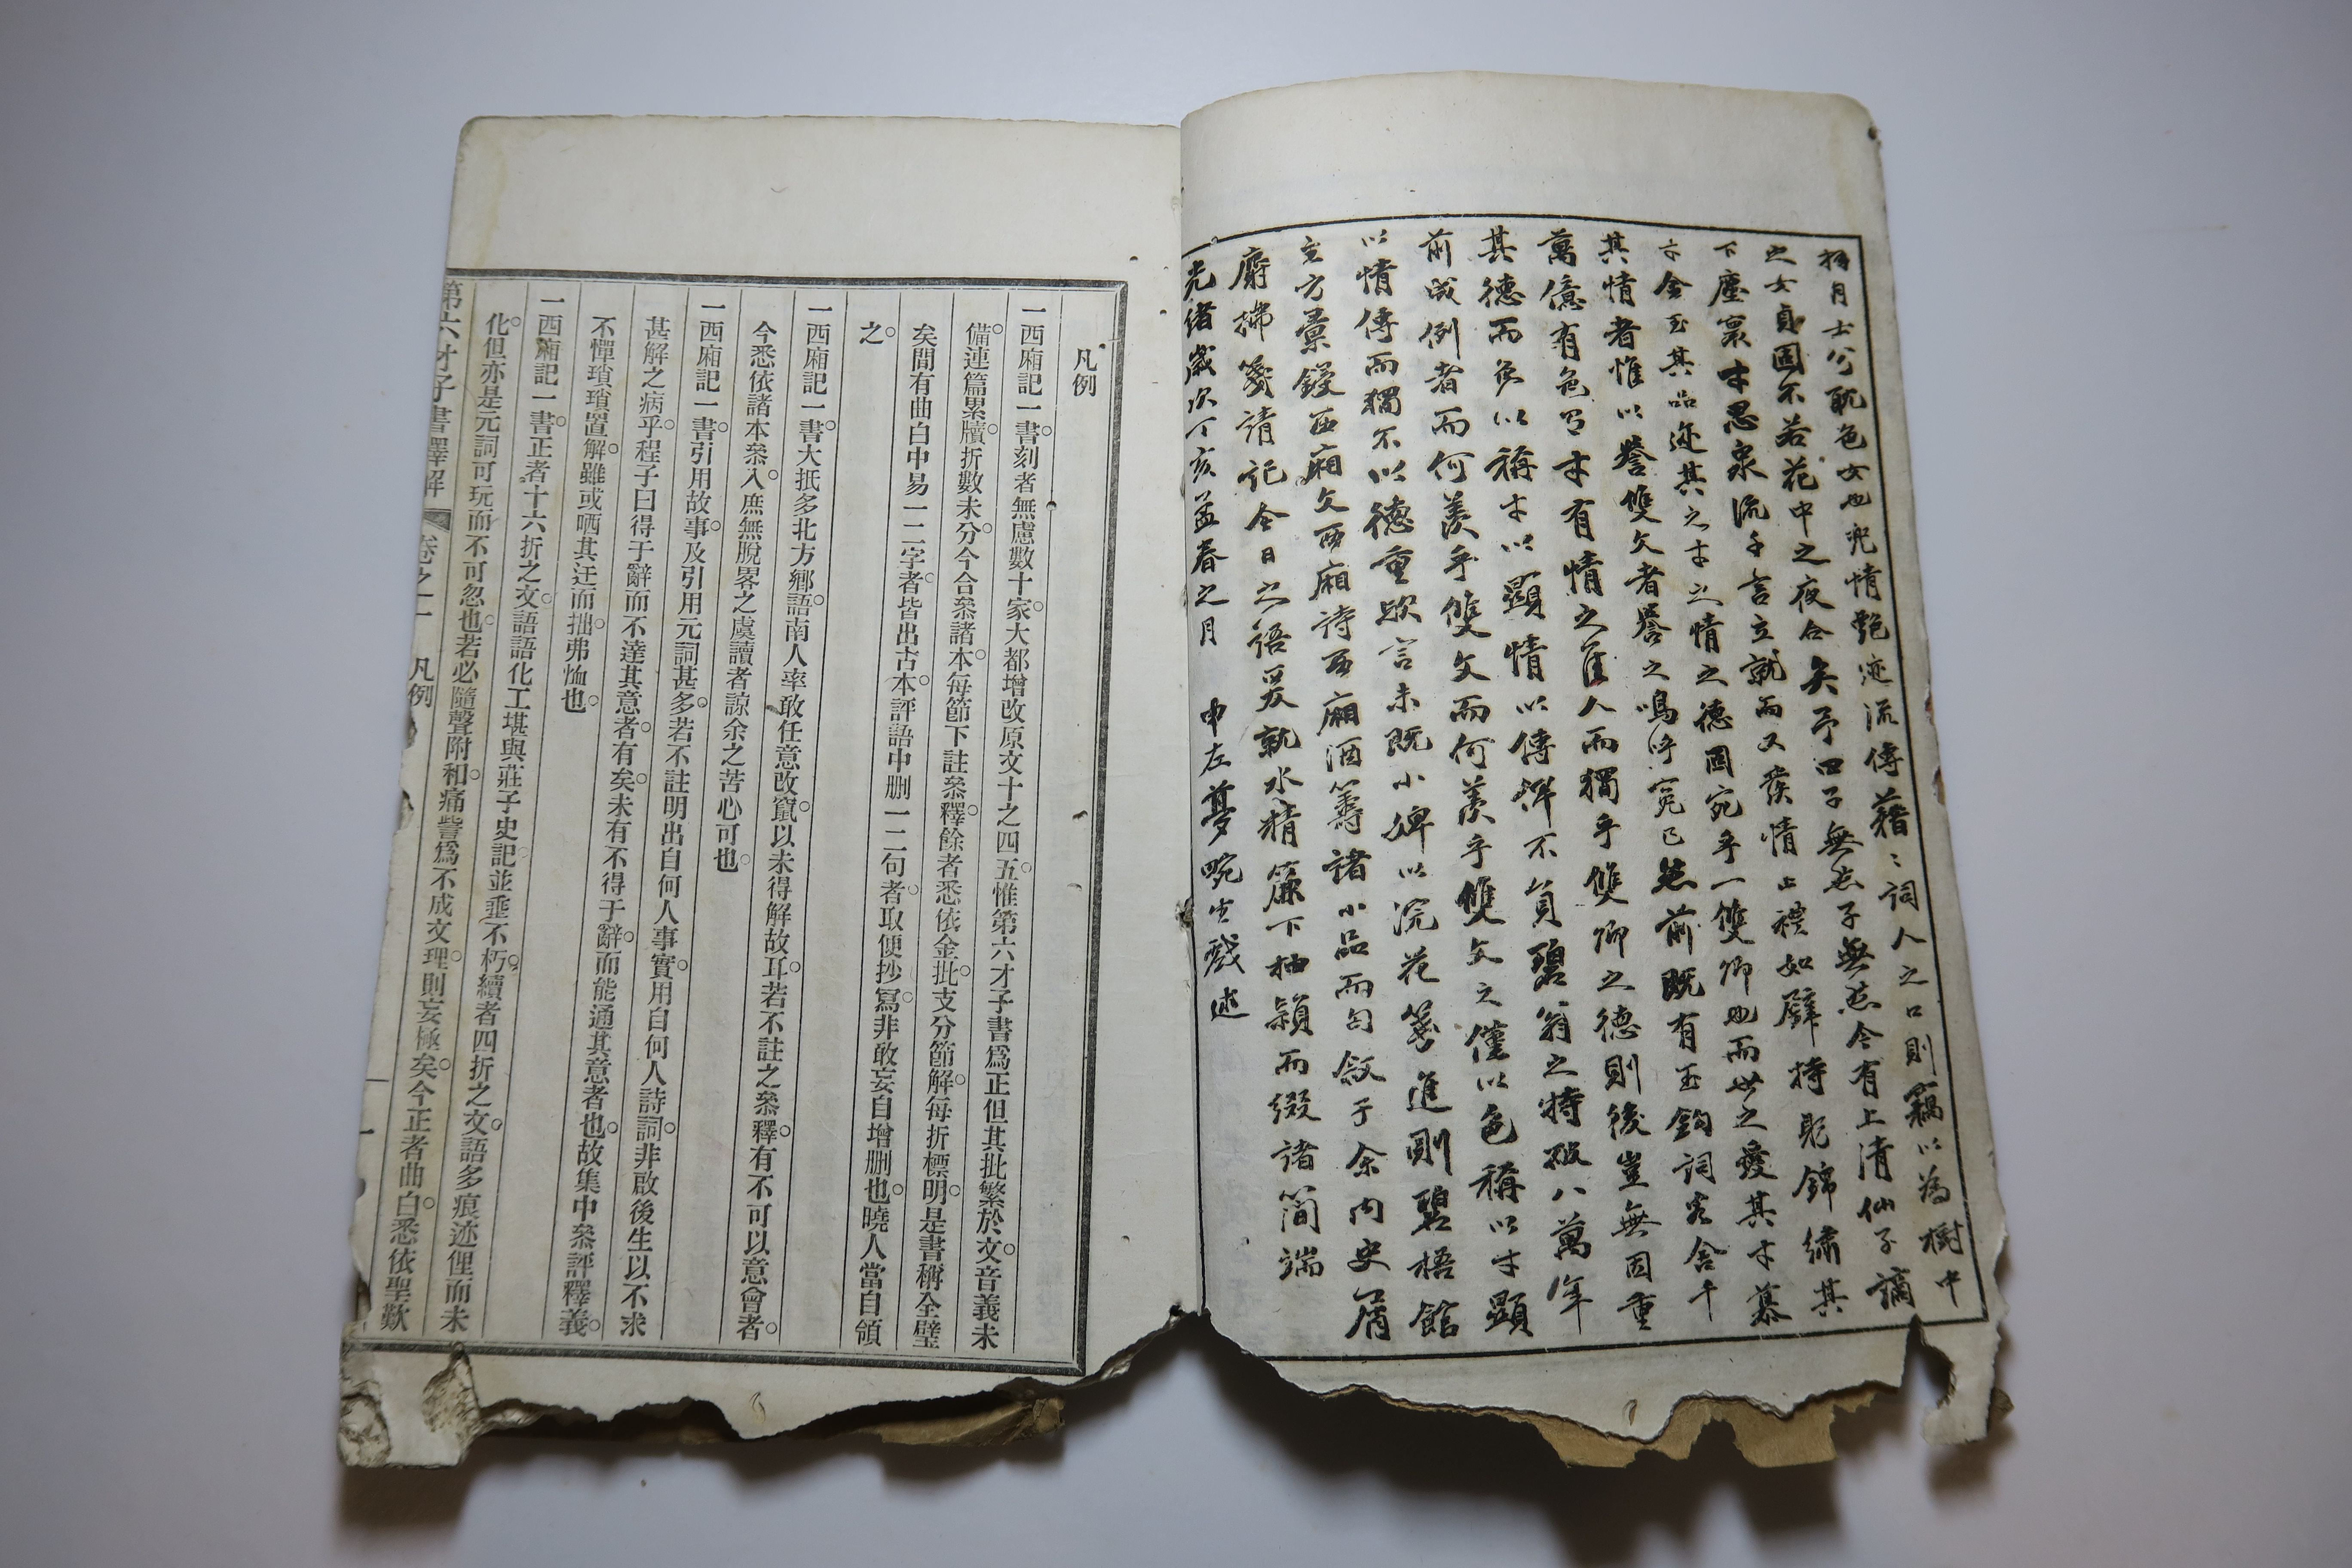 扨月士公耽色女也兜情艷迹流傳藉〻詞人之口則竊以為樹中
之女貞固不若花中之夜合矣予曰子無忘子無忘今有上清仙子謫
下塵寰才思泉流千言立就而又發情止禮如璧持躬錦繡其
才金玉其品迹其之才之情之德固宛乎一雙卿也而世之愛其才慕
其情者惟以譽雙文者譽之嗚呼寃已然前既有玉鈎詞客舍千
萬億有色有才有情之隹人而獨乎雙卿之德則後豈無因重
其德而色以稱才以顯情以傳俾不負碧翁之特破八萬年
前成例者而何羨乎雙文而何羨乎雙文之僅以色稱以才顯
以情傳而獨不以德重歟言未既小婢以浣花箋進則碧梧館
主方彙鋟西廂文西廂詩西廂酒籌諸小品而匄敘于余內史屑
麝拂箋請記今日之語爰就水精簾下抽穎而綴諸簡端
光緒歲次丁亥孟春之月 申左夢畹生戲述
凡例
一西廂記一書刻者無慮數十家大都增改原文十之四五惟第六才子書爲正但其批繁於文音義未
備連篇累牘折數未分今合叅諸本每節下註叅釋餘者悉依金批支分節解每折標明是書稱全璧
矣間有曲白中易一二字者皆出古本評語中删一二句者取便抄寫非敢妄自增删也曉人當自領
之
一西廂記一書大抵多北方鄉語南人率敢任意改竄以未得解故耳若不註之叅釋有不可以意會者
今悉依諸本叅入庶無脫畧之虞讀者諒余之苦心可也
一西廂記一書引用故事及引用元詞甚多若不註明出自何人事實用自何人詩詞非啟後生以不求
甚解之病乎程子曰得于辭而不達其意者有矣未有不得于辭而能通其意者也故集中叅評釋義
不憚瑣瑣置解雖或哂其迂而拙弗恤也
一西廂記一書正者十六折之文語語化工堪與莊子史記並垂不朽續者四折之文語多痕迹俚而未
化但亦是元詞可玩而不可忽也若必隨聲附和痛訾爲不成文理則妄極矣今正者曲白悉依聖歎
第六才子書釋解 卷之一 凡例 一